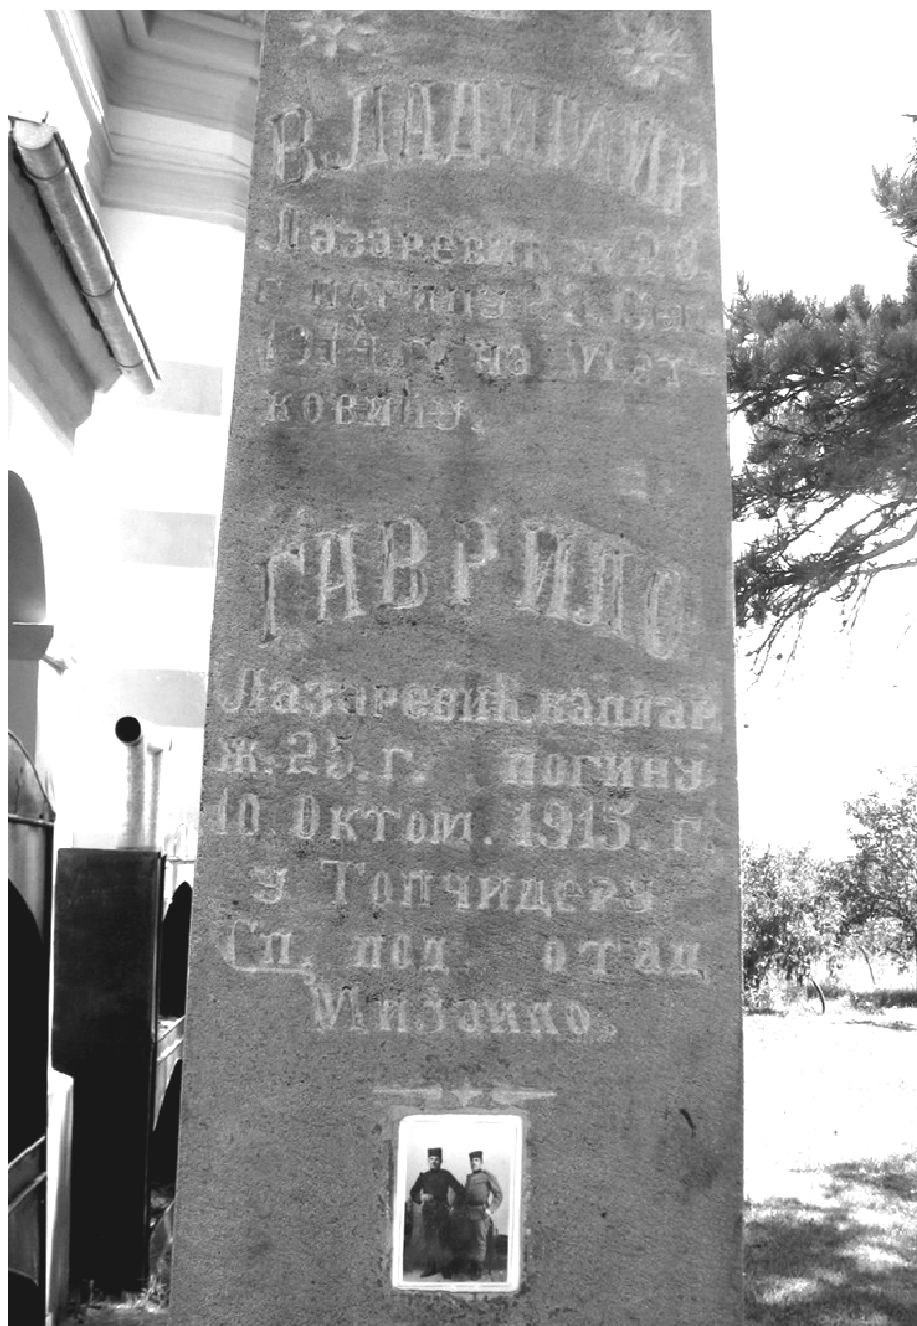 ВЛАДИМИР
Лазаревић ж. 20.
г. погину 23. Сеп
1914. г. на Мат-
ковићу.
ГАВРИЛО
Лазаревић каплар
ж. 25. г. погину
10. Октом. 1915. г.
у Топчидеру
Сп. под. отац
Миаило.